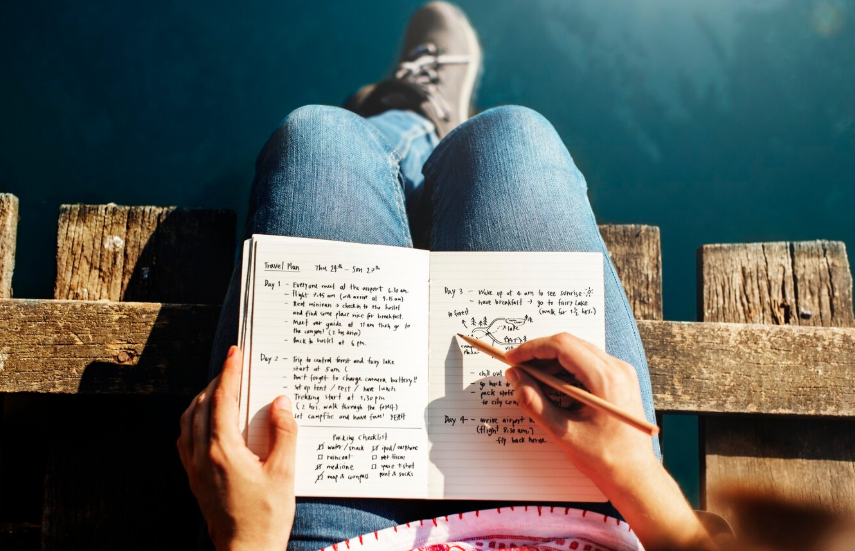 Travel Plan Thu 24th - Sun 27th
Day 1 - Everyone meet at the airport 6.30 am.
- Flight 7.45 am (will arrive at 9.15 am)
- Rent minivan > check in to the hostel
and find some place nice for breakfast.
- Meet our guide at 11 am then go to
the campsite (2 hrs drive)
- Back to hostel at 6 pm.
Day 2 - Trip to central forest and fairy lake
start at 5 am
Don't forget to charge camera battery!!
- Set up tent / rest / have lunch
Trekking start at 1.30 pm
(2 hrs. walk through the forest)
set campfire and have fun! YEAH
Packing Checklist
water/snack
ipod/earphone
raincoat
wet tissue
medicine
spare t-shirt
map & compass
pant & socks
Day 3 - Wake up at 4 am to see sunrise
- have breakfast → go to fairy lake
(walk for 1½ hrs.)
to forest
lake
- chill out
go back
- pack stuff
to city
Day 4 - arrive airport
(flight 8.30 am.)
fly back home